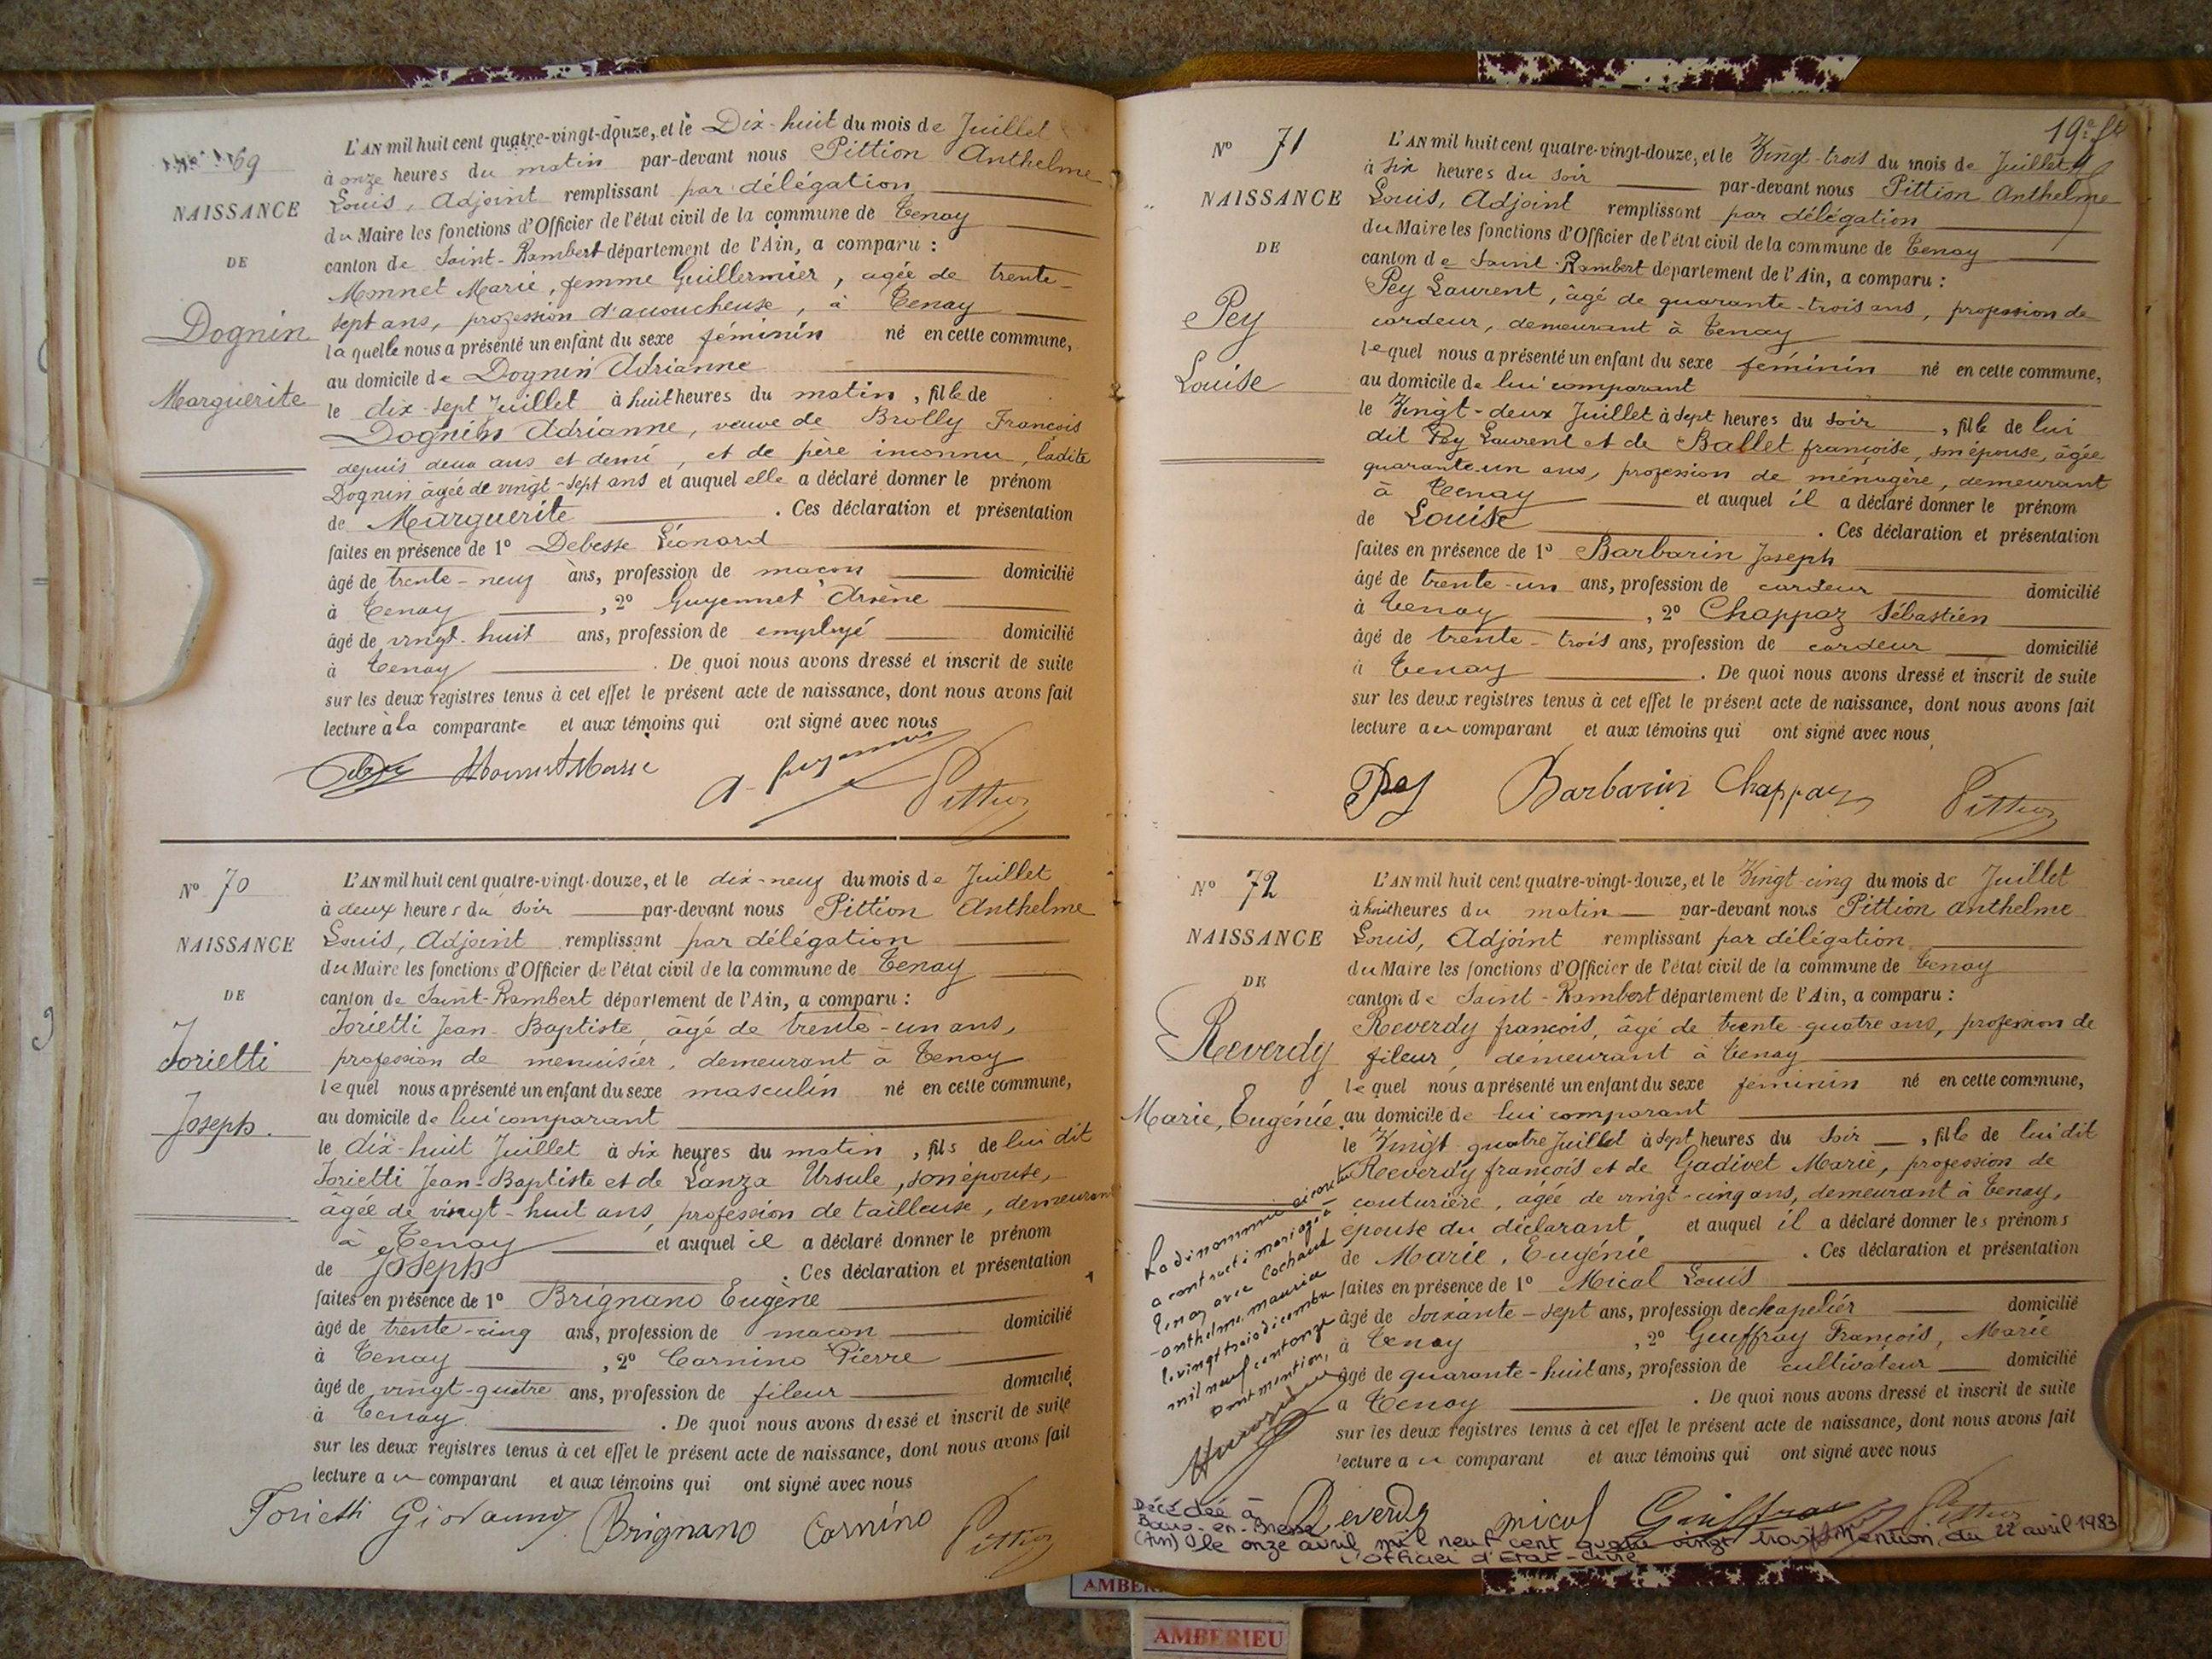 69
NAISSANCE
DE
Dognin
Marguerite
L'AN mil huit cent quatre-vingt-douze, et le Dix-huit du mois de Juillet
à onze heures du matin par-devant nous Pittion Anthelme
Louis, Adjoint remplissant par délégation
du Maire les fonctions d'Officier de l'état civil de la commune de Tenay
canton de Saint-Rambert département de l'Ain, a comparu :
Monnet Marie, femme Guillermier, agée de trente-
sept ans, profession d'accoucheuse, à Tenay
laquelle nous a présenté un enfant du sexe féminin né en cette commune,
au domicile de Dognin Adrianne
le dix-sept Juillet à huit heures du matin, fille de
Dognin Adrianne, veuve de Brolly François
depuis deux ans et demi, et de père inconnu, ladite
Dognin âgée de vingt-sept ans et auquel elle a déclaré donner le prénom
de Marguerite. Ces déclaration et présentation
faites en présence de 1º Debesse Léonard
âgé de trente-neuf ans, profession de maçon domicilié
à Tenay, 2º Guyennet Arsène
âgé de vingt-huit ans, profession de employé domicilié
à Tenay. De quoi nous avons dressé et inscrit de suite
sur les deux registres tenus à cet effet le présent acte de naissance, dont nous avons fait
lecture à la comparante et aux témoins qui ont signé avec nous
Monnet Marie Pittion
Nº 70
NAISSANCE
DE
Iorietti
Joseph.
L'AN mil huit cent quatre-vingt-douze, et le dix-neuf du mois de Juillet
à deux heures du soir par-devant nous Pittion Anthelme
Louis, Adjoint remplissant par délégation
du Maire les fonctions d'Officier de l'état civil de la commune de Tenay
canton de Saint-Rambert département de l'Ain, a comparu :
Iorietti Jean-Baptiste, âgé de trente-un ans,
profession de menuisier, demeurant à Tenay
lequel nous a présenté un enfant du sexe masculin né en cette commune,
au domicile de lui comparant
le dix-huit Juillet à six heures du matin, fils de lui dit
Iorietti Jean-Baptiste et de Lanza Ursule, son épouse,
âgée de vingt-huit ans, profession de tailleuse, demeurant
à Tenay et auquel il a déclaré donner le prénom
de Joseph. Ces déclaration et présentation
faites en présence de 1º Brignano Eugène
âgé de trente-cinq ans, profession de maçon domicilié
à Tenay, 2º Carnino Pierre
âgé de vingt-quatre ans, profession de fileur domicilié
à Tenay. De quoi nous avons dressé et inscrit de suite
sur les deux registres tenus à cet effet le présent acte de naissance, dont nous avons fait
lecture au comparant et aux témoins qui ont signé avec nous
Iorietti Giovanni Brignano Carnino Pittion
Nº 71
NAISSANCE
DE
Pey
Louise
L'AN mil huit cent quatre-vingt-douze, et le Vingt-trois du mois de Juillet
à six heures du soir par-devant nous Pittion Anthelme
Louis, Adjoint remplissant par délégation
du Maire les fonctions d'Officier de l'état civil de la commune de Tenay
canton de Saint-Rambert département de l'Ain, a comparu :
Pey Laurent, âgé de quarante-trois ans, profession de
cardeur, demeurant à Tenay
lequel nous a présenté un enfant du sexe féminin né en cette commune,
au domicile de lui comparant
le Vingt-deux Juillet à sept heures du soir, fille de lui
dit Pey Laurent et de Ballet françoise, son épouse, âgée
quarante-un ans, profession de ménagère, demeurant
à Tenay et auquel il a déclaré donner le prénom
de Louise. Ces déclaration et présentation
faites en présence de 1º Barbarin Joseph
âgé de trente-un ans, profession de cardeur domicilié
à Tenay, 2º Chappaz Sébastien
âgé de trente-trois ans, profession de cardeur domicilié
à Tenay. De quoi nous avons dressé et inscrit de suite
sur les deux registres tenus à cet effet le présent acte de naissance, dont nous avons fait
lecture au comparant et aux témoins qui ont signé avec nous
Pey Barbarin Chappaz Pittion
Nº 72
NAISSANCE
DE
Reverdy
Marie, Eugénie.
L'AN mil huit cent quatre-vingt-douze, et le Vingt-cinq du mois de Juillet
à huit heures du matin par-devant nous Pittion anthelme
Louis, Adjoint remplissant par délégation
du Maire les fonctions d'Officier de l'état civil de la commune de Tenay
canton de Saint-Rambert département de l'Ain, a comparu :
Reverdy françois, âgé de trente quatre ans, profession de
fileur, demeurant à Tenay
lequel nous a présenté un enfant du sexe féminin né en cette commune,
au domicile de lui comparant
le Vingt quatre Juillet à sept heures du soir, fille de lui dit
Reverdy françois et de Gadivet Marie, profession de
couturière, âgée de vingt-cinq ans, demeurant à Tenay,
épouse du déclarant, et auquel il a déclaré donner les prénoms
de Marie, Eugénie. Ces déclaration et présentation
faites en présence de 1º Mical Louis
âgé de soixante-sept ans, profession de chapelier domicilié
à Tenay, 2º Guiffray François, Marie
âgé de quarante-huit ans, profession de cultivateur domicilié
à Tenay. De quoi nous avons dressé et inscrit de suite
sur les deux registres tenus à cet effet le présent acte de naissance, dont nous avons fait
lecture au comparant et aux témoins qui ont signé avec nous
La dénommée ci contre
a contracté mariage à
Tenay avec Cochand
anthelme maurice
le vingt trois décembre
mil neuf cent onze
Dont mention,
Reverdy Mical Guiffray Pittion
Décédée à
(Ain) le onze avril mil neuf cent quatre vingt trois Mention du 22 avril 1983
L'Officier d'Etat-Civil
AMBERIEU